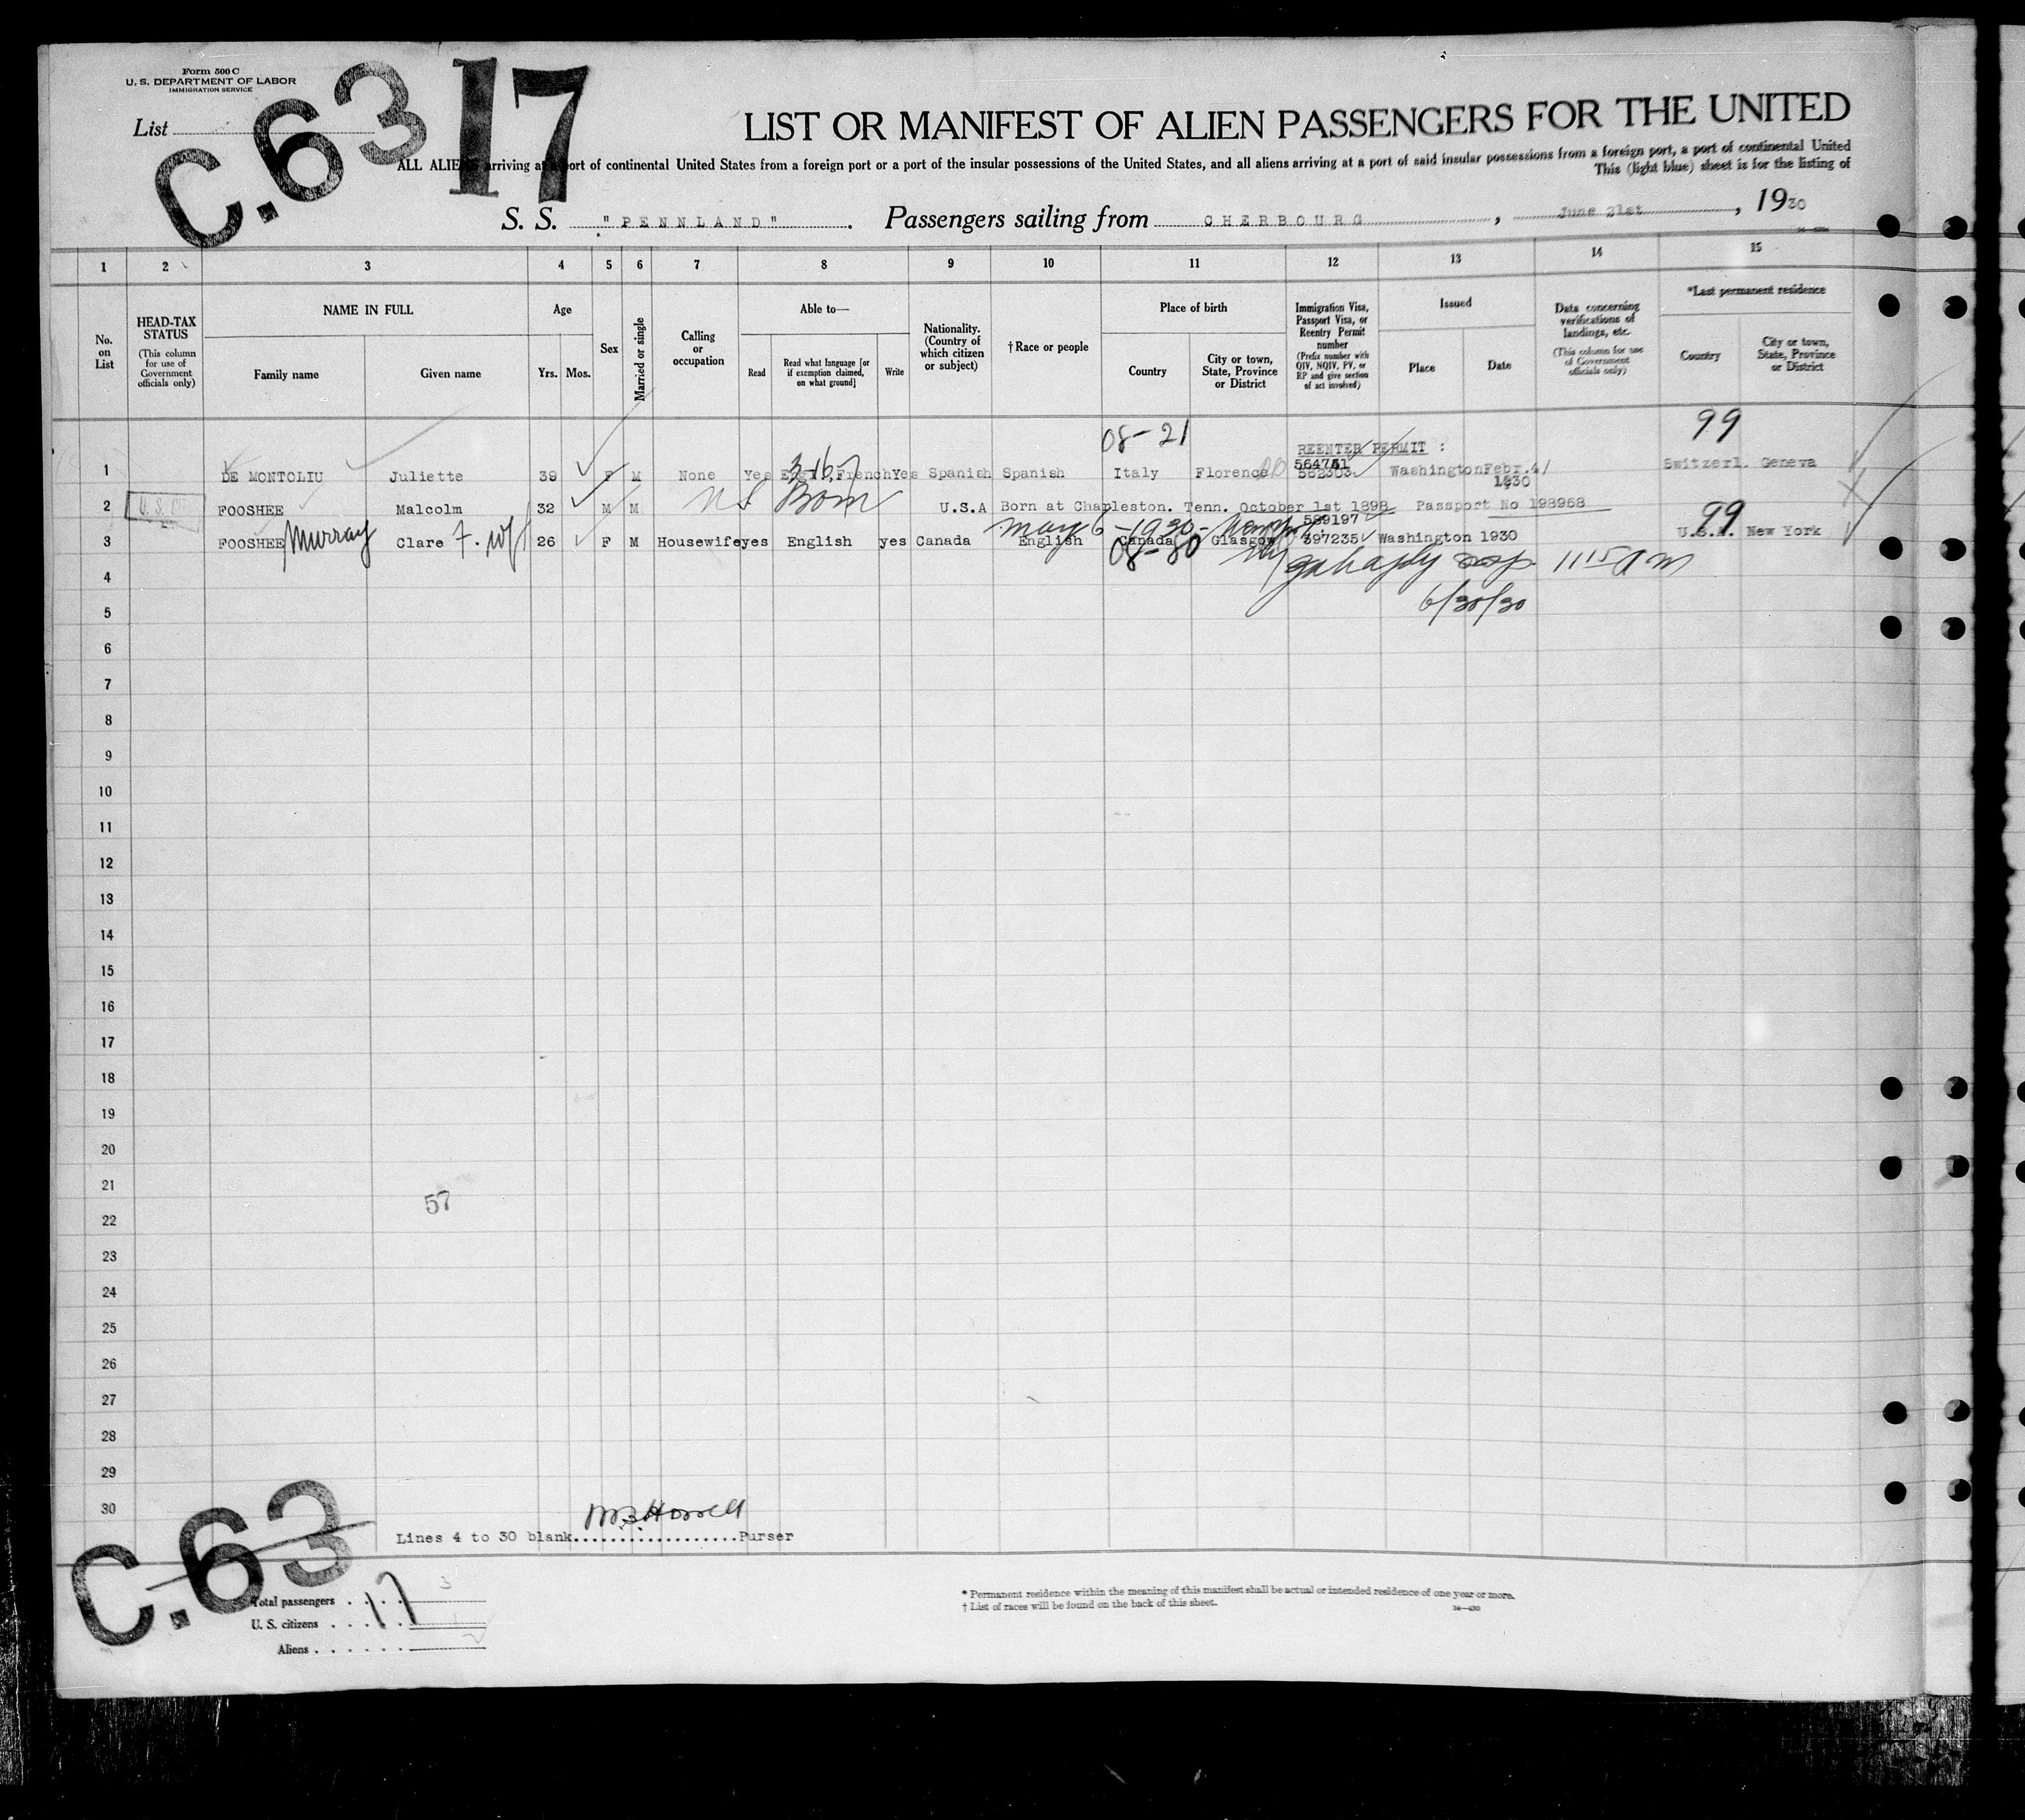 Form 500 C
U. S. DEPARTMENT OF LABOR
IMMIGRATION SERVICE
List
C.63 17
LIST OR MANIFEST OF ALIEN PASSENGERS FOR THE UNITED
ALL ALIENS arriving at a port of continental United States from a foreign port or a port of the insular possessions of the United States, and all aliens arriving at a port of said insular possessions from a foreign port, a port of continental United
This (light blue) sheet is for the listing of
S. S. "PENNLAND". Passengers sailing from CHERBOURG, June 21st, 1930
1 2 3 4 5 6 7 8 9 10 11 12 13 14 15
No. on List
HEAD-TAX STATUS (This column for use of Government officials only)
NAME IN FULL
Family name Given name
Age
Yrs. Mos.
Sex
Married or single
Calling or occupation
Able to—
Read
Read what language [or if exemption claimed, on what ground]
Write
Nationality. (Country of which citizen or subject)
†Race or people
Place of birth
Country
City or town, State, Province or District
Immigration Visa, Passport Visa, or Reentry Permit number (Prefix number with QIV, NQIV, PV, or RP and give section of act involved)
Issued
Place Date
Data concerning verifications of landings, etc. (This column for use of Government officials only)
*Last permanent residence
Country
City or town, State, Province or District
08-21 REENTER PERMIT : 99
564741
1 DE MONTOLIU Juliette 39 F M None Yes Engl., French Yes Spanish Spanish Italy Florence 562303 Washington Febr.4/ 1930 Switzerl. Geneva
3-167
U.S. Born
2 FOOSHEE Malcolm 32 M M U.S.A Born at Charleston. Tenn. October 1st 1898 Passport No 198958
May 6-1930- 589197 99
3 FOOSHEE Murray Clare F. 26 F M Housewife yes English yes Canada English Canada Glasgow 397235 Washington 1930 U.S.A. New York
08-80
4 11 15 AM
5 6/30/30
6
7
8
9
10
11
12
13
14
15
16
17
18
19
20
21
57
22
23
24
25
26
27
28
29
30
Lines 4 to 30 blank..................Purser
C.63
17
Total passengers . . . . 3
U. S. citizens . . . . 1
Aliens . . . . . . 2
* Permanent residence within the meaning of this manifest shall be actual or intended residence of one year or more.
† List of races will be found on the back of this sheet.